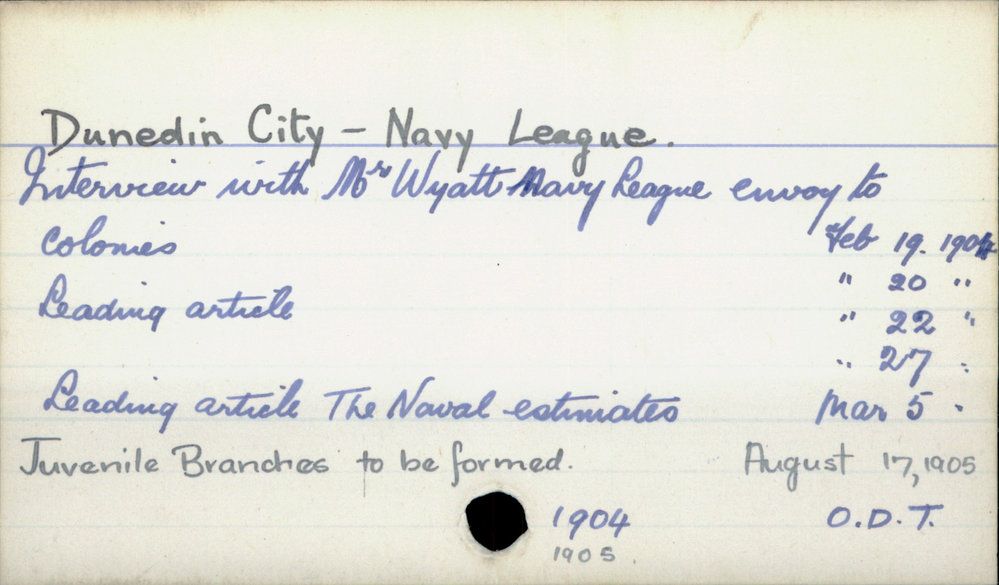 Dunedin City – Navy League.
Interview with Mr Wyatt Navy League envoy to
colonies Feb 19. 1904
" 20 "
Leading article " 22 "
" 27 "
Leading article The Naval estimates Mar 5 "
Juvenile Branches to be formed. August 17, 1905
1904 O.D.T.
1905.